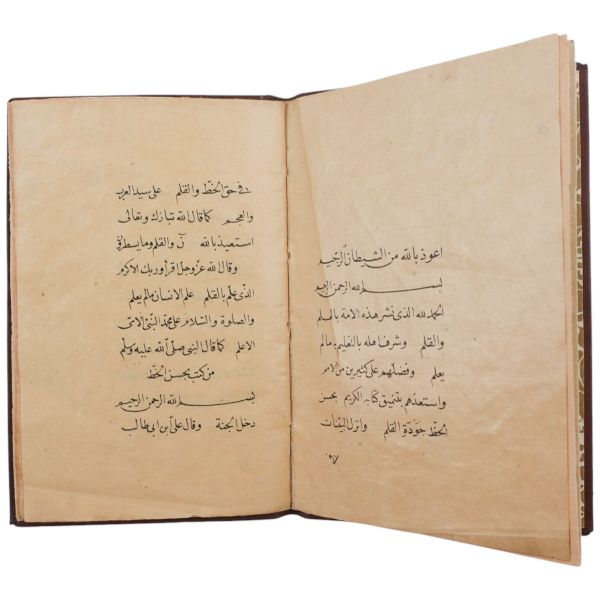 اعوذ بالله من الشيطان الرجيم
بسم الله الرحمن الرحيم
الحمد لله الذى نشر هذه الامة بالعلم
والقلم وشرف اهله بالتعليم مالم
يعلم وفضلهم على كثيرين من الامم
واستعدهم بتنميق كتابه الكريم بحسن
الخط جودة القلم وانزل البينات
فى حق الخط والقلم على سيد العرب
والعجم كما قال الله تبارك وتعالى
استعيذ بالله ن والقلم وما يسطرون
وقال الله عز وجل اقرأ وربك الاكرم
الذى علم بالقلم علم الانسان مالم يعلم
والصلوة والسلام على محمد النبى الامى
الاعلم كما قال النبى صلى الله عليه وسلم
من كتب بحسن الخط
بسم الله الرحمن الرحيم
دخل الجنة وقال على بن ابى طالب